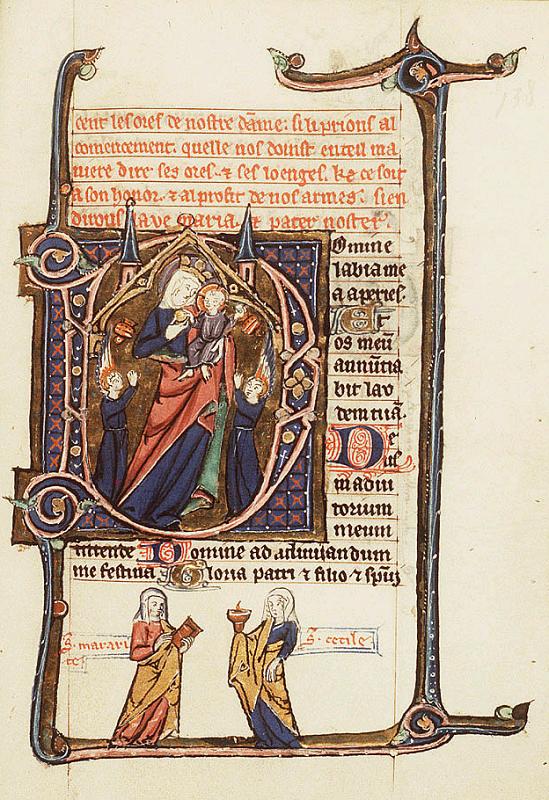 cent les ores de nostre dāme: si li prions al
comencement. quelle nos doinst en teil ma
niere dire ses ores. & ses loenges. ke ce soit
a son honor. & al profit de nos armes. sien
dirons. ave maria. & pater noster.
Domine
labia me
a aperies.
Et
os meū
annūtia
bit lau
dem tuā.
De
us
in adiu
torium
meum
intende Domine ad adiuuandum
me festina Gloria patri & filio & spūi
S. margari
te
S. cecile
138